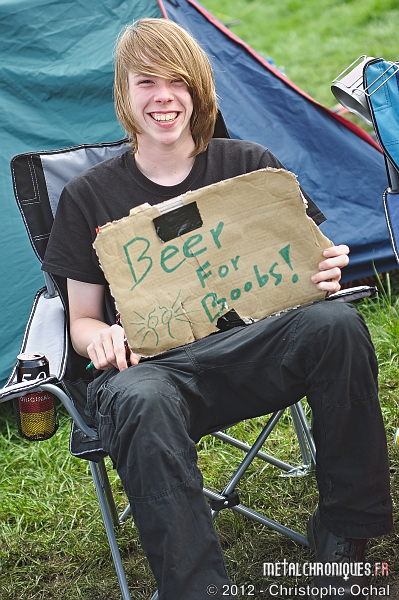 Beer
For
Boobs!
ORIGINAL
METALCHRONIQUES.FR
© 2012 - Christophe Ochal